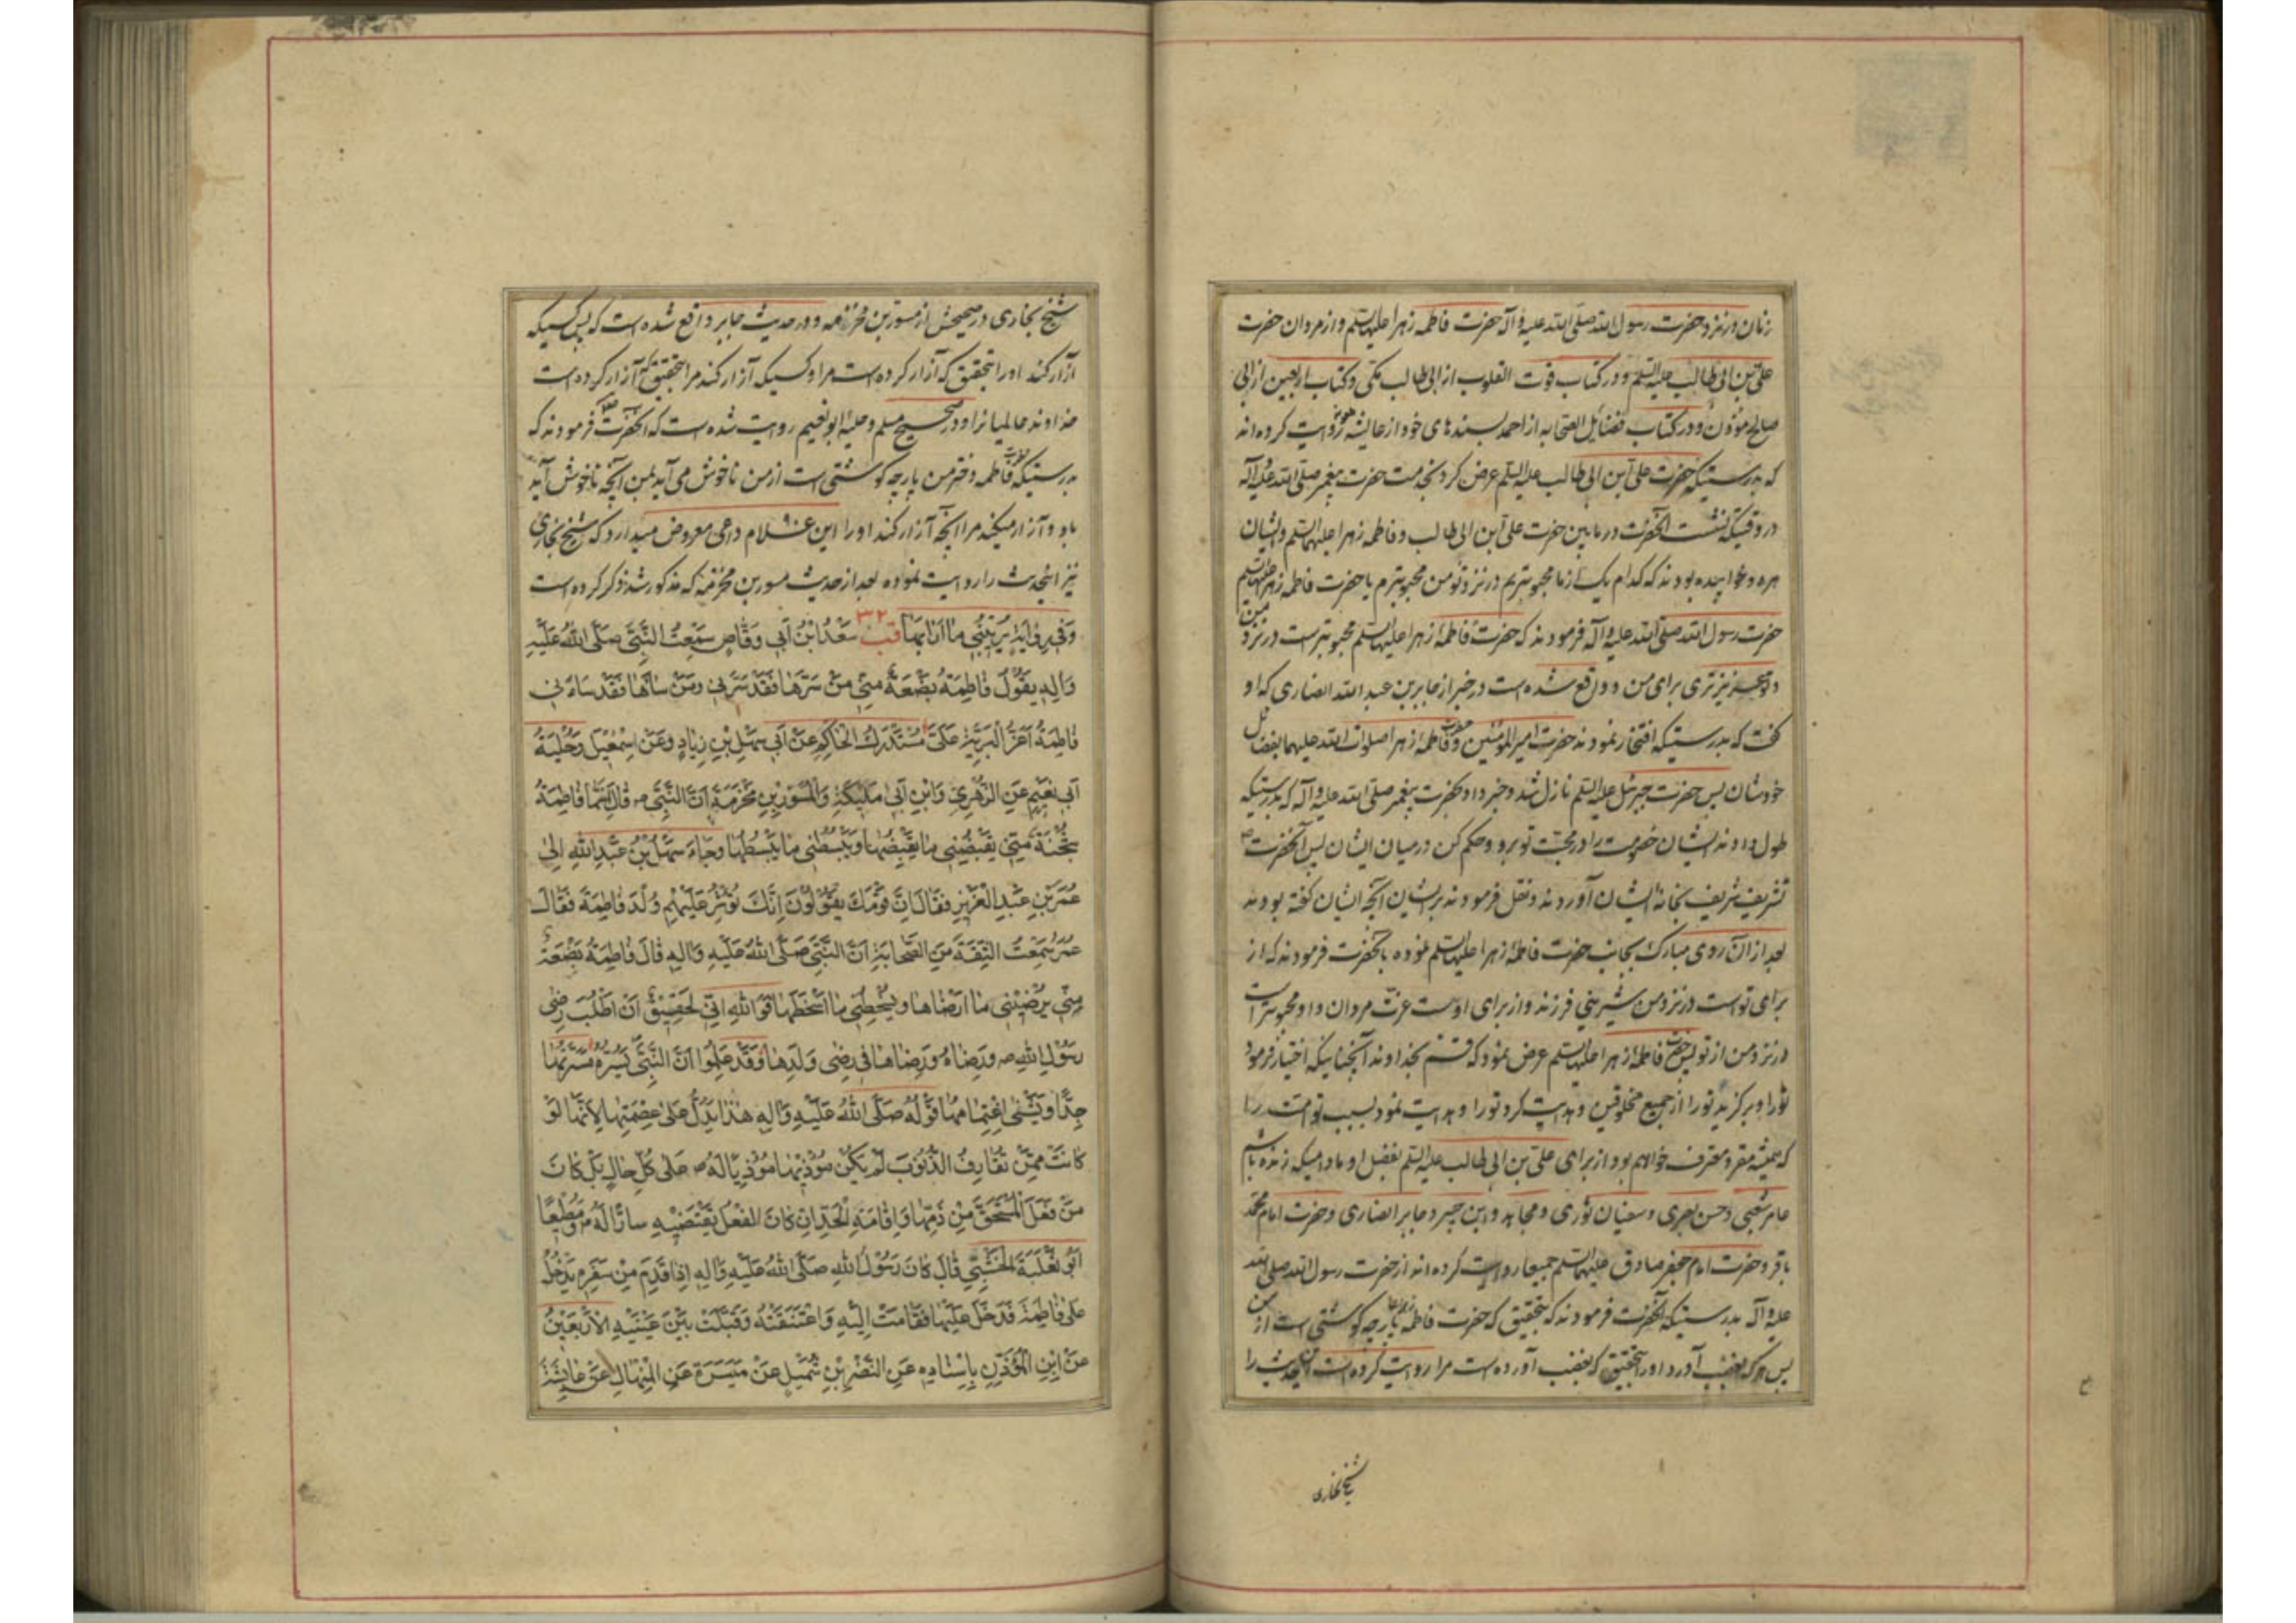 زنان در نزد حضرت رسول الله صلی الله علیه و آله حضرت فاطمه زهرا علیها السلم و از مردان حضرت
علی بن ابی طالب علیه السلم و در کتاب قوت القلوب از ابی طالب مکی و کتاب اربعین از ابی
صالح مؤذن و در کتاب فضایل الصحابه از احمد بسندهای خود از عایشه روایت کرده اند
که بدرستیکه حضرت علی ابن ابی طالب علیه السلم عرض کرد بخدمت حضرت پیغمبر صلی الله علیه و آله
در وقتیکه نشست آنحضرت در مابین حضرت علی ابن ابی طالب و فاطمه زهرا علیهما السلم و ایشان
هر دو خوابیده بودند که کدام یک از ما محبوبتریم در نزد تو من محبوبترم یا حضرت فاطمه زهرا علیها السلم
حضرت رسول الله صلی الله علیه و آله فرمودند که حضرت فاطمه زهرا علیها السلم محبوبتر است در نزد من
و تو عزیزتری برای من و واقع شده است در خبر از جابر بن عبد الله انصاری که او
گفت که بدرستیکه افتخار نمودند حضرت امیر المؤمنین و حضرت فاطمه زهرا صلوات الله علیهما بفضایل
خودشان پس حضرت جبرئیل علیه السلم نازل شد و خبر داد بحضرت پیغمبر صلی الله علیه و آله که بدرستیکه
طول دادند ایشان خصومت را در محبت تو برو و حکم کن در میان ایشان پس آنحضرت ص
تشریف شریف بخانه ایشان آوردند و نقل فرمودند بر ایشان آنچه ایشان گفته بودند
بعد از آن روی مبارک بجانب حضرت فاطمه زهرا علیها السلم نموده بآنحضرت فرمودند که از
برای تو است در نزد من شیرینی فرزند و از برای اوست عزت مردان و او محبوبتر است
در نزد من از تو پس حضرت فاطمه زهرا علیها السلم عرض نمود که قسم بخداوند آنچنانیکه اختیار فرمود
تو را و برگزید تو را از جمیع مخلوقین و هدایت کرد تو را و هدایت نمود بسبب تو امت را
که همیشه مقر و معترف خواهم بود از برای علی بن ابی طالب علیه السلم بفضل او مادامیکه زنده باشم
عامر شعبی و حسن بصری و سفیان ثوری و مجاهد و ابن جبیر و جابر انصاری و حضرت امام محمد
باقر و حضرت امام جعفر صادق علیهما السلم جمیعا روایت کرده اند از حضرت رسول الله صلی الله
علیه و آله بدرستیکه آنحضرت فرمودند که بتحقیق که حضرت فاطمه پارچه گوشتی است از من
پس هر که بغضب آورد او را بتحقیق که بغضب آورده است مرا روایت کرده است این حدیث را
شیخ بخاری
شیخ بخاری در صحیحش از مسور بن مخرمه و در حدیث جابر واقع شده است که پس کسیکه
آزار کند او را بتحقیق که آزار کرده است مرا و کسیکه آزار کند مرا بتحقیق که آزار کرده است
خداوند عالمیانرا و در صحیح مسلم و حلیه ابو نعیم روایت شده است که آنحضرت ص فرمودند که
بدرستیکه فاطمه دختر من پارچه گوشتی است از من ناخوش می آید بمن آنچه ناخوش آید
باو و آزار میکند مرا آنچه آزار کند او را این غلام داعی معروض میدارد که شیخ بخاری
نیز اینحدیث را روایت نموده بعد از حدیث مسور بن مخرمه که مذکور شد ذکر کرده است
وَفی رِوایَةٍ یُرِیبُنی ما اَرابَها قب ٣٢ سَعْدُ ابْنُ اَبی وَقّاصٍ سَمِعْتُ النَّبِیَّ صَلَّی اللهُ عَلَیْهِ
وَآلِهِ یَقُولُ فاطِمَةُ بَضْعَةٌ مِنّی مَنْ سَرَّها فَقَدْ سَرَّنی وَمَنْ سآءَها فَقَدْ سآءَنی
فاطِمَةُ اَعَزُّ الْبَرِیَّةِ عَلَیَّ مُسْتَدْرَكُ الْحاکِمِ عَنْ اَبی سَهْلِ بْنِ زِیادٍ وَعَنْ اِسْمعیلَ وَحُلْیَةُ
اَبی نَعیمٍ عَنِ الزُّهْرِیِّ وَابْنِ اَبی مُلَیْکَةَ وَالْمِسْوَرِ بْنِ مَخْرَمَةَ اَنَّ النَّبِیَّ ص قالَ اِنَّما فاطِمَةُ
شِجْنَةٌ مِنّی یَقْبِضُنی ما یَقْبِضُها وَیَبْسُطُنی ما یَبْسُطُها وَجاءَ سَهْلُ بْنُ عَبْدِ اللهِ اِلی
عُمَرَ بْنِ عَبْدِ الْعَزیزِ فَقالَ اِنَّ قَوْمَكَ یَقُولُونَ اِنَّكَ تُؤْثِرُ عَلَیْهِمْ وُلْدَ فاطِمَةَ فَقالَ
عُمَرُ سَمِعْتُ الثِّقَةَ مِنَ الصَّحابَةِ اَنَّ النَّبِیَّ صَلَّی اللهُ عَلَیْهِ وَآلِهِ قالَ فاطِمَةُ بَضْعَةٌ
مِنّی یُرْضینی ما اَرْضاها وَیُسْخِطُنی ما اَسْخَطَها فَوَ اللهِ اِنّی لَحَقیقٌ اَنْ اَطْلُبَ رِضی
رَسُولِ اللهِ ص وَرِضاهُ وَرِضاها فی رِضی وَلَدِها وَقَدْ عَلِمُوا اَنَّ النَّبِیَّ یَسُرُّهُ مَسَرَّتُها
جِدًّا وَیَشْنی اِغْتِمامَها قَوْلُهُ صَلَّی اللهُ عَلَیْهِ وَآلِهِ هذا یَدُلُّ عَلی عِصْمَتِها لِاَنَّها لَوْ
کانَتْ مِمَّنْ تُقارِفُ الذُّنُوبَ لَمْ یَکُنْ مُؤْذیها مُؤْذِیًا لَهُ ص عَلی کُلِّ حالٍ بَلْ کانَ
مَنْ فَعَلَ الْمُسْتَحَقَّ مِنْ ذَمِّها وَاِقامَةِ الْحَدِّ اِنْ کانَ الْفِعْلُ یَقْتَضیهِ سارًّا لَهُ ص وَمُطیعًا
اَبُو ثَعْلَبَةَ الْخُشَنِیُّ قالَ کانَ رَسُولُ اللهِ صَلَّی اللهُ عَلَیْهِ وَآلِهِ اِذا قَدِمَ مِنْ سَفَرِهِ یَدْخُلُ
عَلی فاطِمَةَ فَدَخَلَ عَلَیْها فَقامَتْ اِلَیْهِ وَاعْتَنَقَتْهُ وَقَبَّلَتْ بَیْنَ عَیْنَیْهِ الْاَرْبَعینُ
عَنْ ابْنِ الْمُؤَذِّنِ بِاِسْنادِهِ عَنِ النَّضْرِ بْنِ شُمَیْلٍ عَنْ مَیْسَرَةَ عَنِ الْمِنْهالِ عَنْ عایِشَةَ